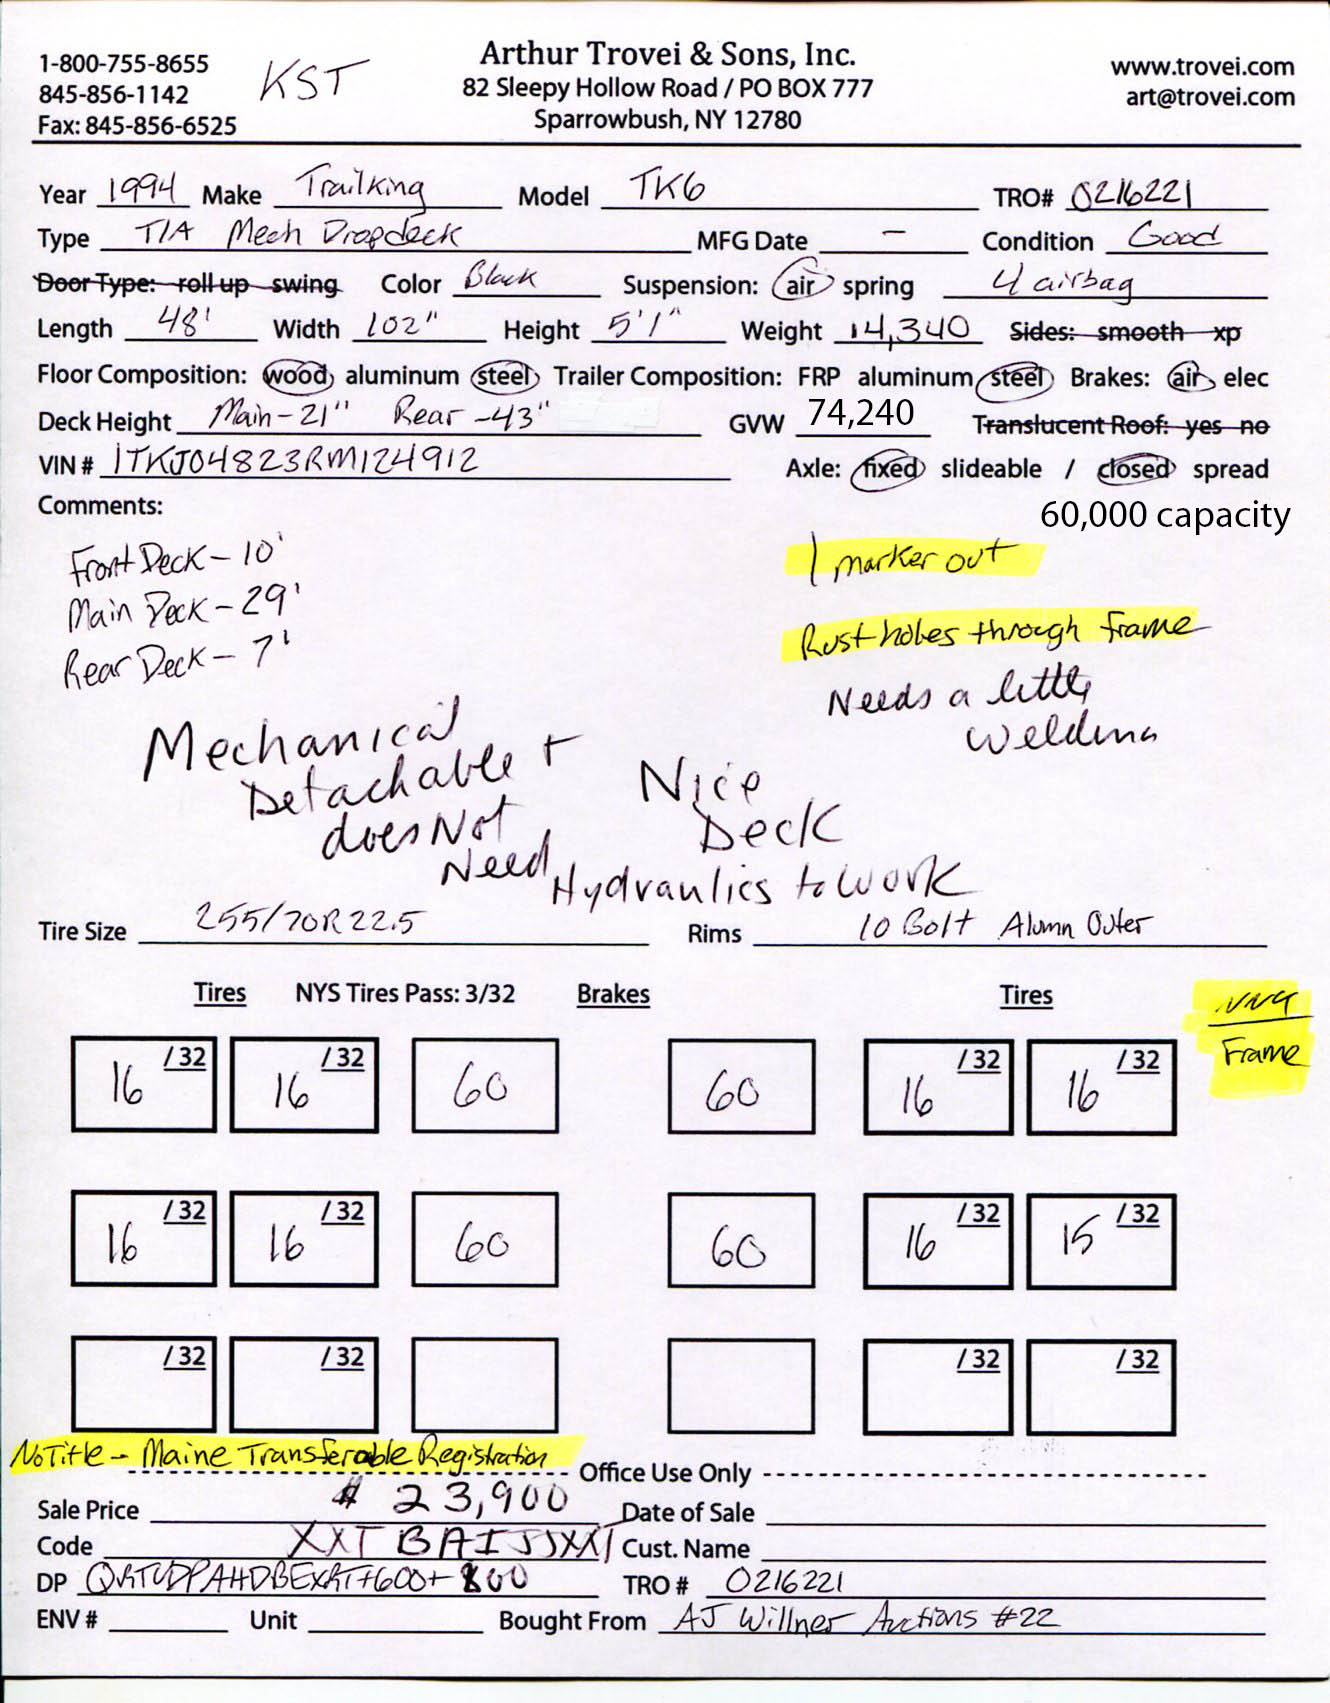 1-800-755-8655
845-856-1142
Fax: 845-856-6525
KST
Arthur Trovei & Sons, Inc.
82 Sleepy Hollow Road / PO BOX 777
Sparrowbush, NY 12780
www.trovei.com
art@trovei.com
Year 1994 Make Trailking Model TK6 TRO# 0216221
Type T/A Mech Dropdeck MFG Date - Condition Good
Door Type: roll up swing Color Black Suspension: air spring 4 airbag
Length 48' Width 102" Height 5'1" Weight 14,340 Sides: smooth xp
Floor Composition: wood aluminum steel Trailer Composition: FRP aluminum steel Brakes: air elec
Deck Height Main-21" Rear-43" GVW 74,240 Translucent Roof: yes no
VIN # 1TKJ04823RM124912 Axle: fixed slideable / closed spread
Comments: 60,000 capacity
Front Deck - 10'
Main Deck - 29'
Rear Deck - 7'
1 marker out
Rust holes through frame
Needs a little
welding
Mechanical
Detachable +
does Not
Need
Hydraulics to work
Nice
Deck
Tire Size 255/70R22.5 Rims 10 Bolt Alumn Outer
Tires NYS Tires Pass: 3/32 Brakes Tires
Frame
16 /32 16 /32 60 60 16 /32 16 /32
16 /32 16 /32 60 60 16 /32 15 /32
/32 /32 /32 /32
No Title - Maine Transferable Registration
Office Use Only
Sale Price $ 23,900 Date of Sale
Code XXTBAIJJXX1 Cust. Name
DP TRO # 0216221
ENV # Unit Bought From AJ Willner Auctions #22